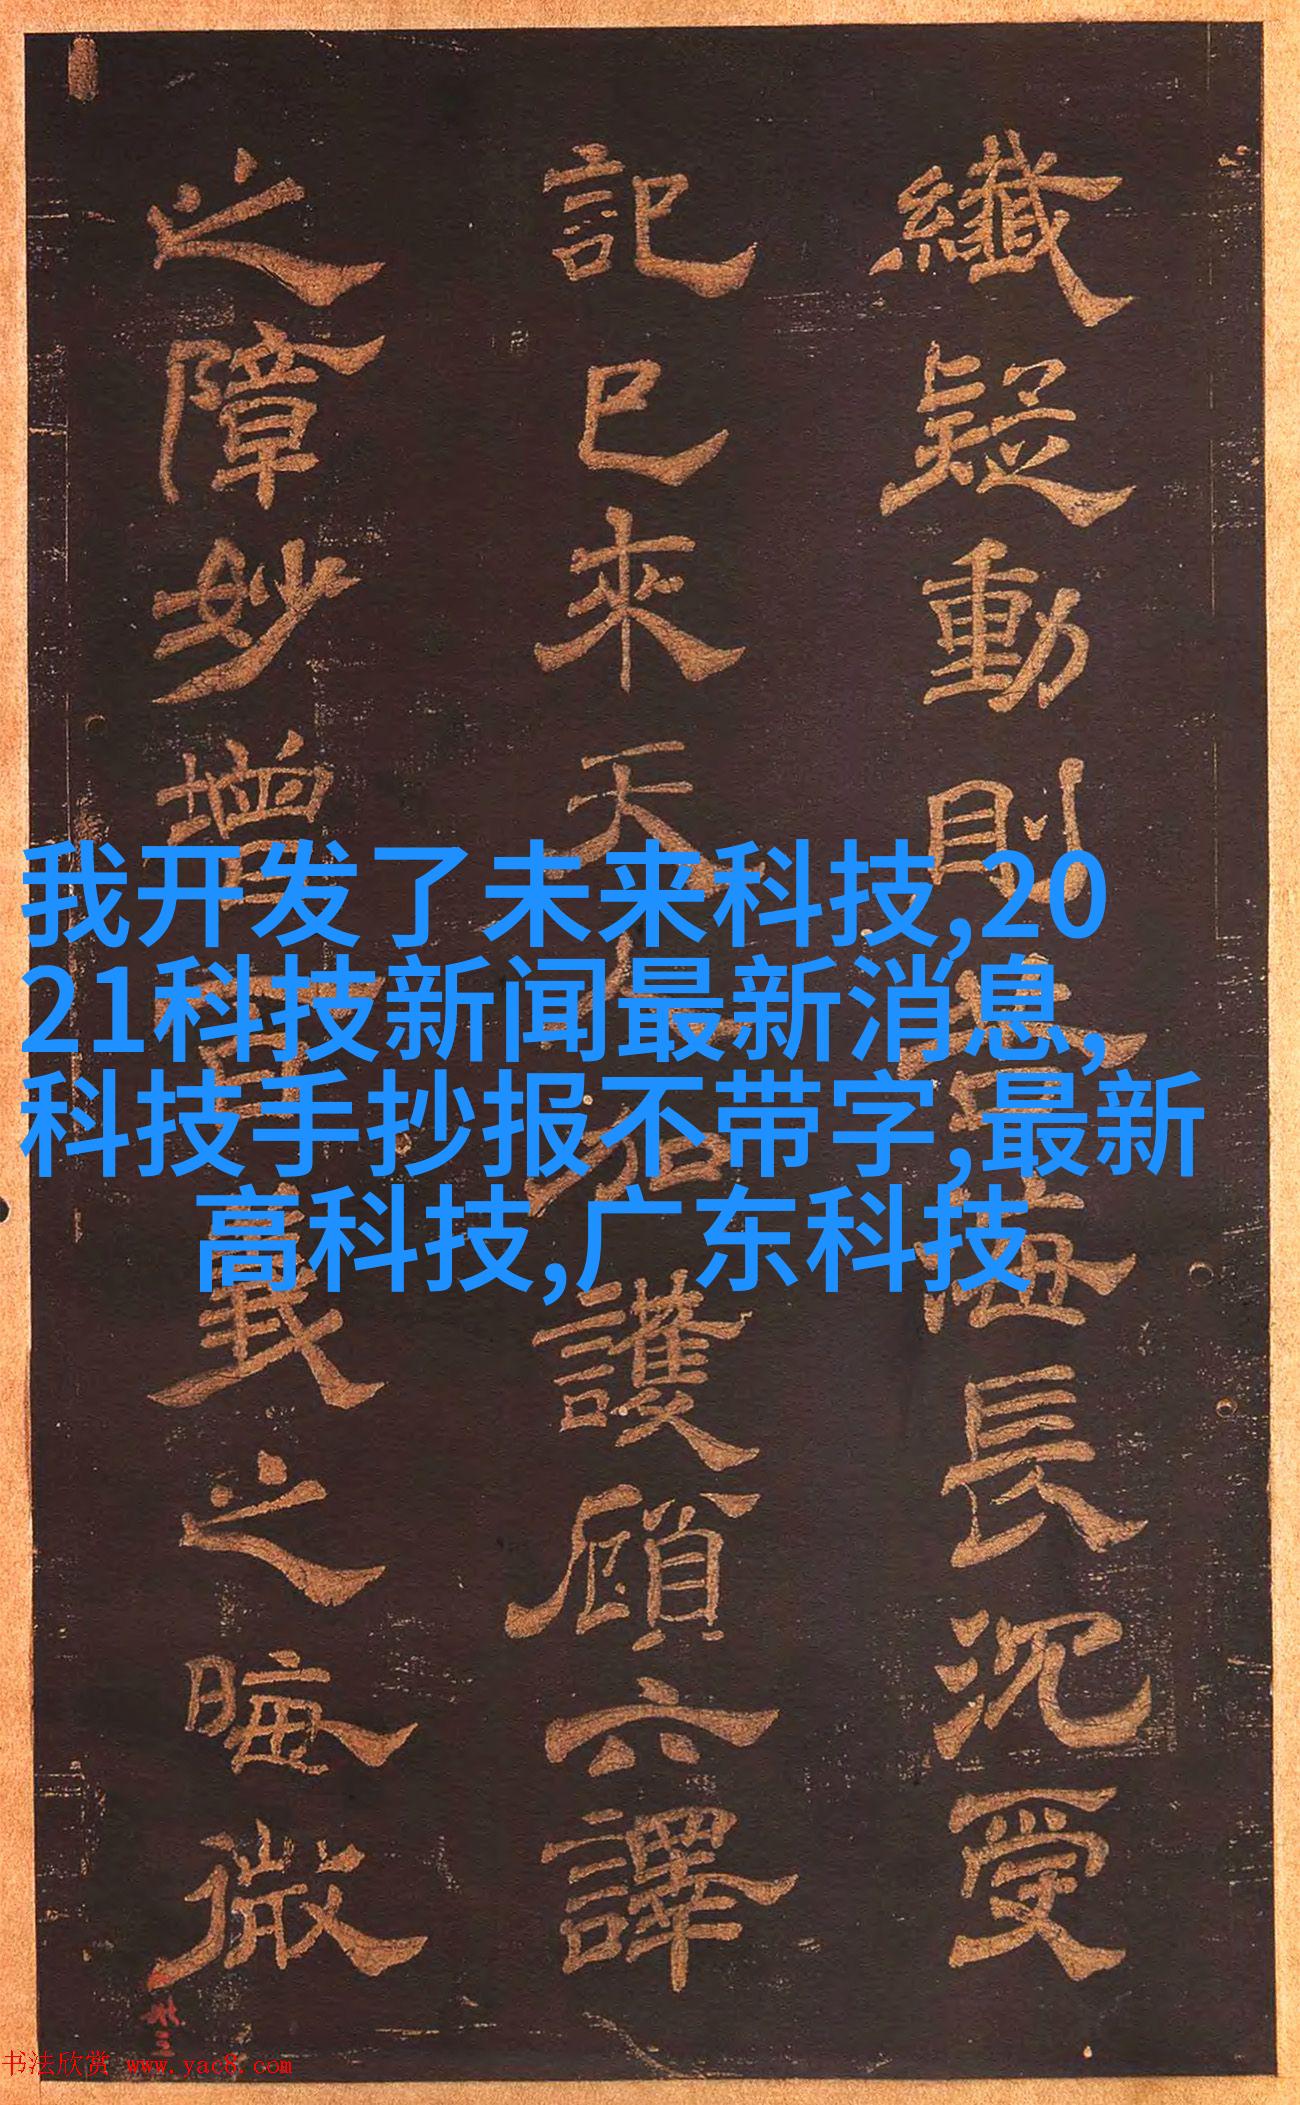 纖疑動則長沉受
記已來天護顧六譯
之障妙增之晦微
我开发了未来科技,20
21科技新闻最新消息,
科技手抄报不带字,最新
高科技,广东科技
书法欣赏 www.yac8.com